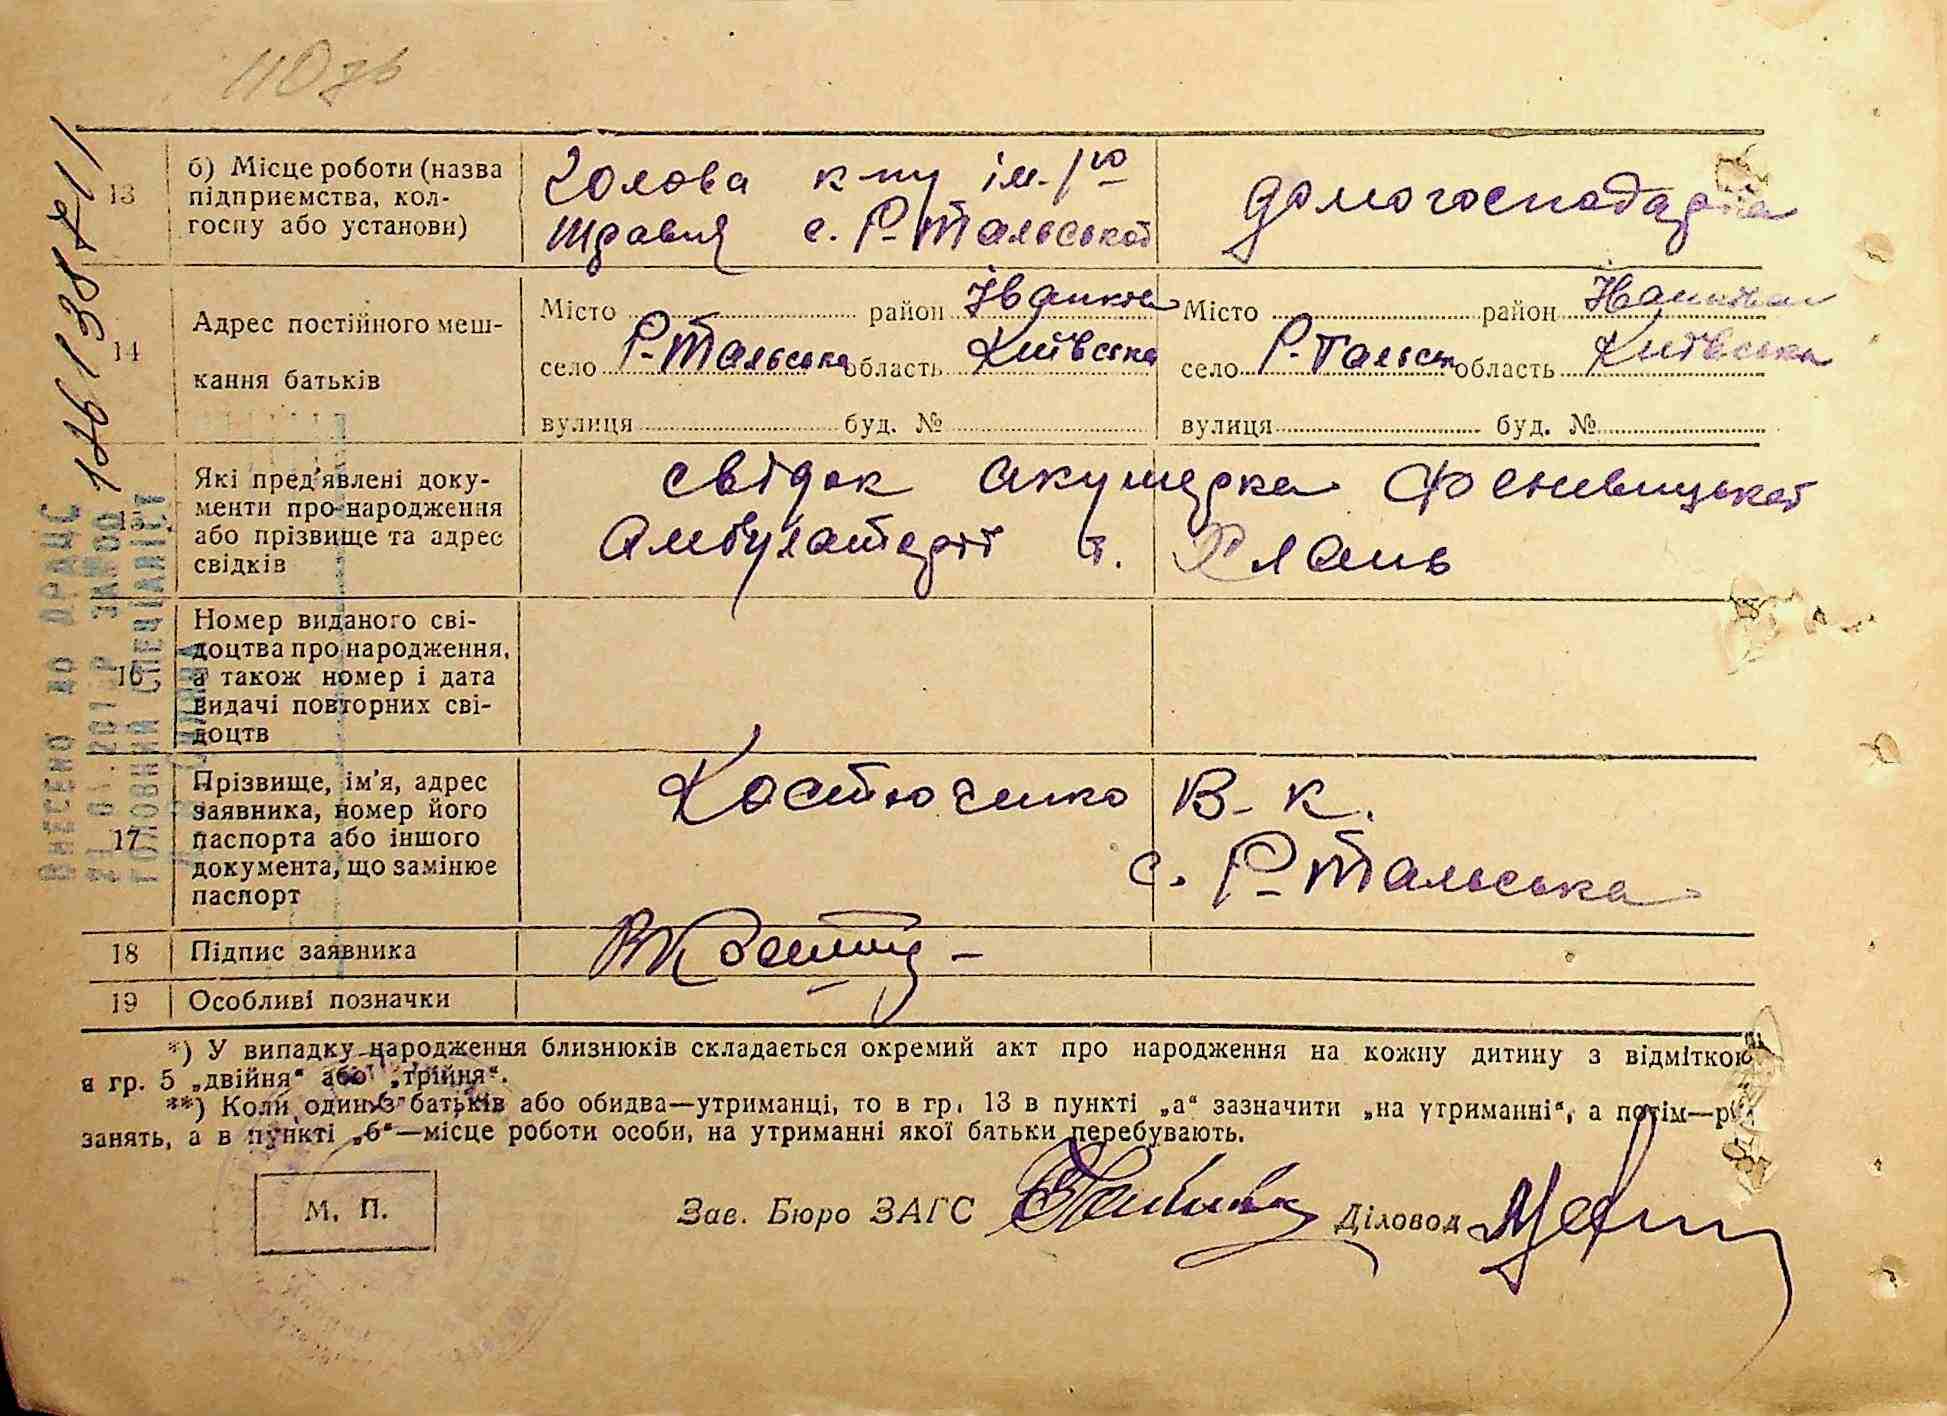 110 зв
13 б) Місце роботи (назва підприємства, колгоспу або установи)
голова к-пу ім. 1го
травня с. Р-Тальської
домогосподарка
14 Адрес постійного мешкання батьків
Місто район Іванков
село Р-Тальська область Київська
вулиця буд. №
Місто район Іванков
село Р-Тальськ область Київська
вулиця буд. №
15 Які пред'явлені документи про народження або прізвище та адрес свідків
свідок акушерка Феневицької
Амбулаторії т. Хлань
16 Номер виданого свідоцтва про народження, а також номер і дата видачі повторних свідоцтв
17 Прізвище, ім'я, адрес заявника, номер його паспорта або іншого документа, що замінює паспорт
Костюченко В. К.
с. Р-Тальська
18 Підпис заявника
19 Особливі позначки
*) У випадку народження близнюків складається окремий акт про народження на кожну дитину з відміткою
в гр. 5 „двійня“ або „трійня“.
**) Коли один з батьків або обидва—утриманці, то в гр. 13 в пункті „а“ зазначити „на утриманні“, а потім—
занять, а в пункті „б“—місце роботи особи, на утриманні якої батьки перебувають.
М. П.
Зав. Бюро ЗАГС
Діловод
ВНЕСЕНО ДО ДРАЦС
ГОЛОВНИЙ СПЕЦІАЛІСТ